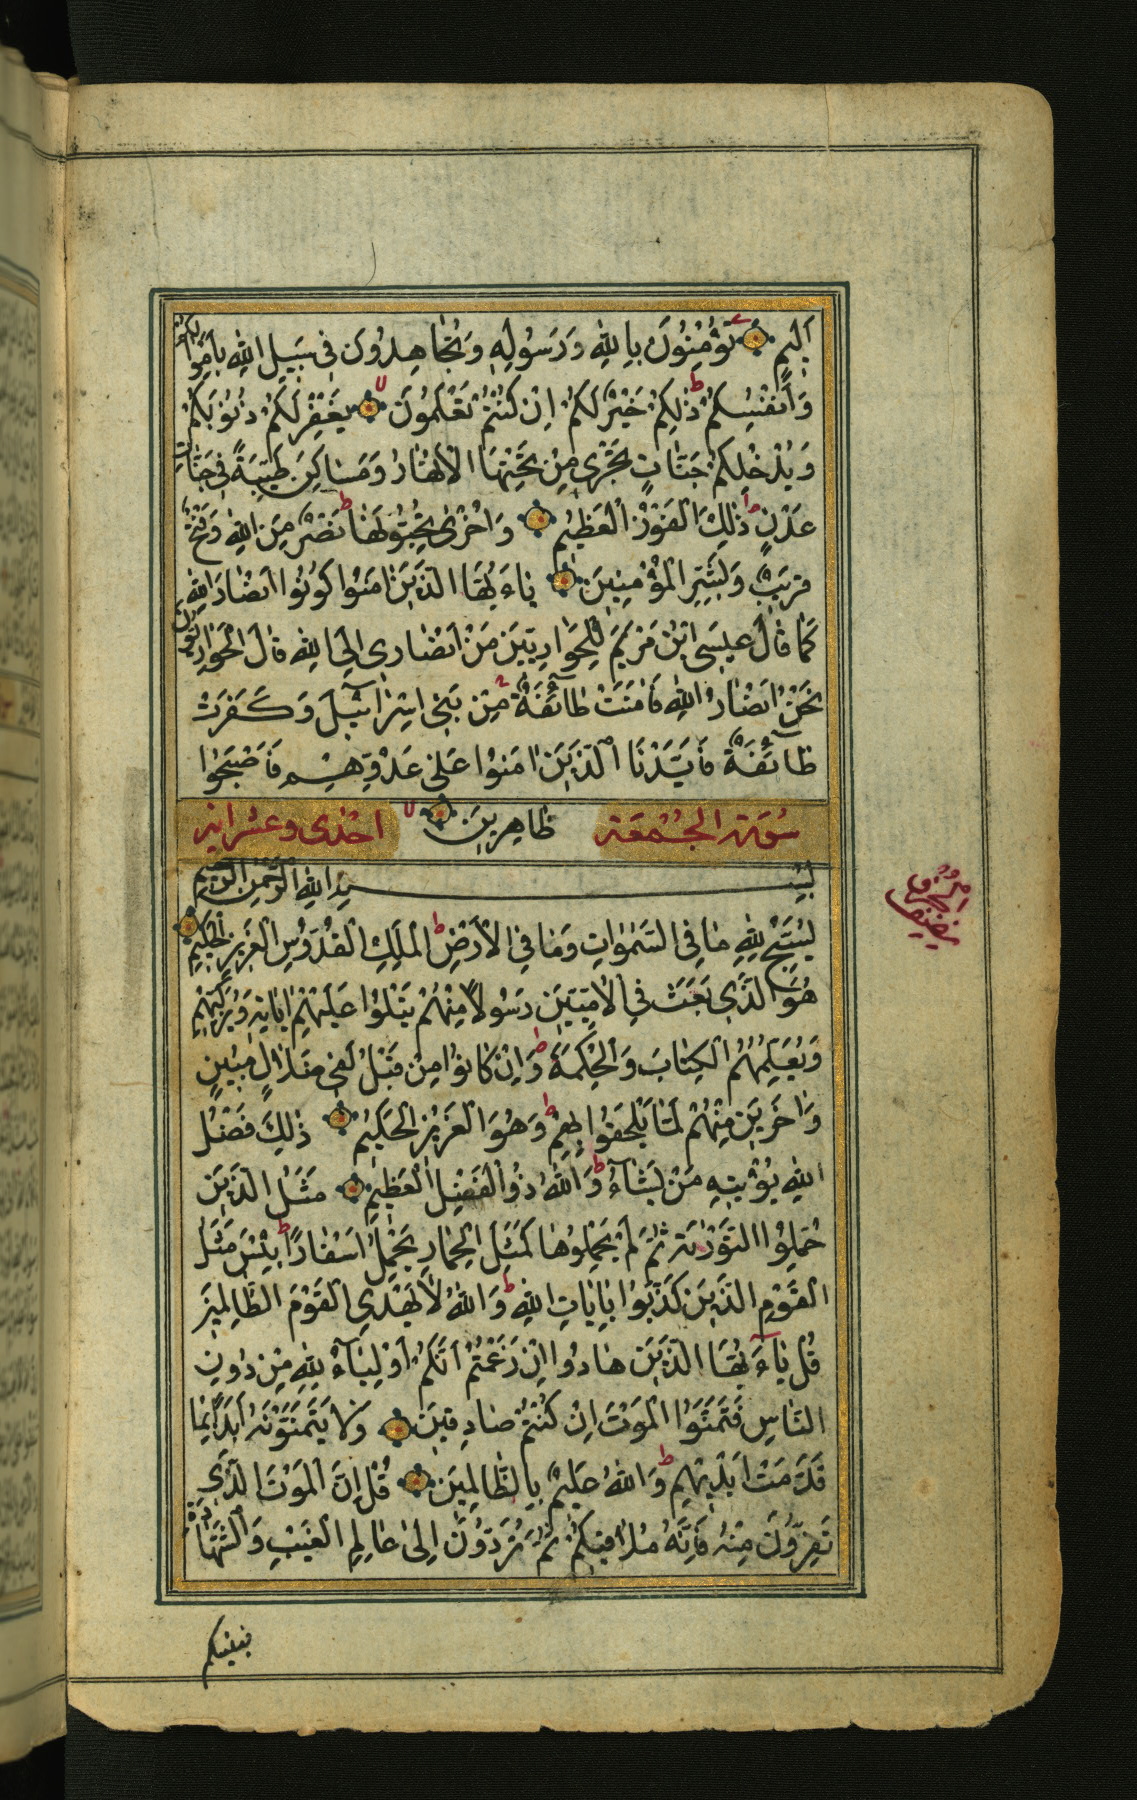 اَلِيمٍ تُؤْمِنُونَ بِاللّٰهِ وَرَسُولِهِ وَتُجَاهِدُونَ فِى سَبِيلِ اللّٰهِ بِاَمْوَالِكُمْ
وَاَنْفُسِكُمْ ذٰلِكُمْ خَيْرٌ لَكُمْ اِنْ كُنْتُمْ تَعْلَمُونَ يَغْفِرْ لَكُمْ ذُنُوبَكُمْ
وَيُدْخِلْكُمْ جَنَّاتٍ تَجْرِى مِنْ تَحْتِهَا الْاَنْهَارُ وَمَسَاكِنَ طَيِّبَةً فِى جَنَّاتِ
عَدْنٍ ذٰلِكَ الْفَوْزُ الْعَظِيمُ وَاُخْرٰى تُحِبُّونَهَا نَصْرٌ مِنَ اللّٰهِ وَفَتْحٌ
قَرِيبٌ وَبَشِّرِ الْمُؤْمِنِينَ يَاءَيُّهَا الَّذِينَ اٰمَنُوا كُونُوا اَنْصَارَ اللّٰهِ
كَمَا قَالَ عِيسَى ابْنُ مَرْيَمَ لِلْحَوَارِيِّينَ مَنْ اَنْصَارِى اِلَى اللّٰهِ قَالَ الْحَوَارِيُّونَ
نَحْنُ اَنْصَارُ اللّٰهِ فَاٰمَنَتْ طَآئِفَةٌ مِنْ بَنِى اِسْرَآئِيلَ وَكَفَرَتْ
طَآئِفَةٌ فَاَيَّدْنَا الَّذِينَ اٰمَنُوا عَلٰى عَدُوِّهِمْ فَاَصْبَحُوا
سُورَة الْجُمُعَة ظَاهِرِينَ احدى وعشر اية
بِسْمِ اللّٰهِ الرَّحْمٰنِ الرَّحِيمِ
يُسَبِّحُ لِلّٰهِ مَا فِى السَّمٰوَاتِ وَمَا فِى الْاَرْضِ الْمَلِكِ الْقُدُّوسِ الْعَزِيزِ الْحَكِيمِ
هُوَ الَّذِى بَعَثَ فِى الْاُمِّيِّينَ رَسُولًا مِنْهُمْ يَتْلُوا عَلَيْهِمْ اٰيَاتِهِ وَيُزَكِّيهِمْ
وَيُعَلِّمُهُمُ الْكِتَابَ وَالْحِكْمَةَ وَاِنْ كَانُوا مِنْ قَبْلُ لَفِى ضَلَالٍ مُبِينٍ
وَاٰخَرِينَ مِنْهُمْ لَمَّا يَلْحَقُوا بِهِمْ وَهُوَ الْعَزِيزُ الْحَكِيمُ ذٰلِكَ فَضْلُ
اللّٰهِ يُؤْتِيهِ مَنْ يَشَآءُ وَاللّٰهُ ذُو الْفَضْلِ الْعَظِيمِ مَثَلُ الَّذِينَ
حُمِّلُوا التَّوْرٰيةَ ثُمَّ لَمْ يَحْمِلُوهَا كَمَثَلِ الْحِمَارِ يَحْمِلُ اَسْفَارًا بِئْسَ مَثَلُ
الْقَوْمِ الَّذِينَ كَذَّبُوا بِاٰيَاتِ اللّٰهِ وَاللّٰهُ لَا يَهْدِى الْقَوْمَ الظَّالِمِينَ
قُلْ يَآءَيُّهَا الَّذِينَ هَادُوا اِنْ زَعَمْتُمْ اَنَّكُمْ اَوْلِيَآءُ لِلّٰهِ مِنْ دُونِ
النَّاسِ فَتَمَنَّوُا الْمَوْتَ اِنْ كُنْتُمْ صَادِقِينَ وَلَا يَتَمَنَّوْنَهُ اَبَدًا بِمَا
قَدَّمَتْ اَيْدِيهِمْ وَاللّٰهُ عَلِيمٌ بِالظَّالِمِينَ قُلْ اِنَّ الْمَوْتَ الَّذِى
تَفِرُّونَ مِنْهُ فَاِنَّهُ مُلَاقِيكُمْ ثُمَّ تُرَدُّونَ اِلٰى عَالِمِ الْغَيْبِ وَالشَّهَادَةِ
فينبئكم